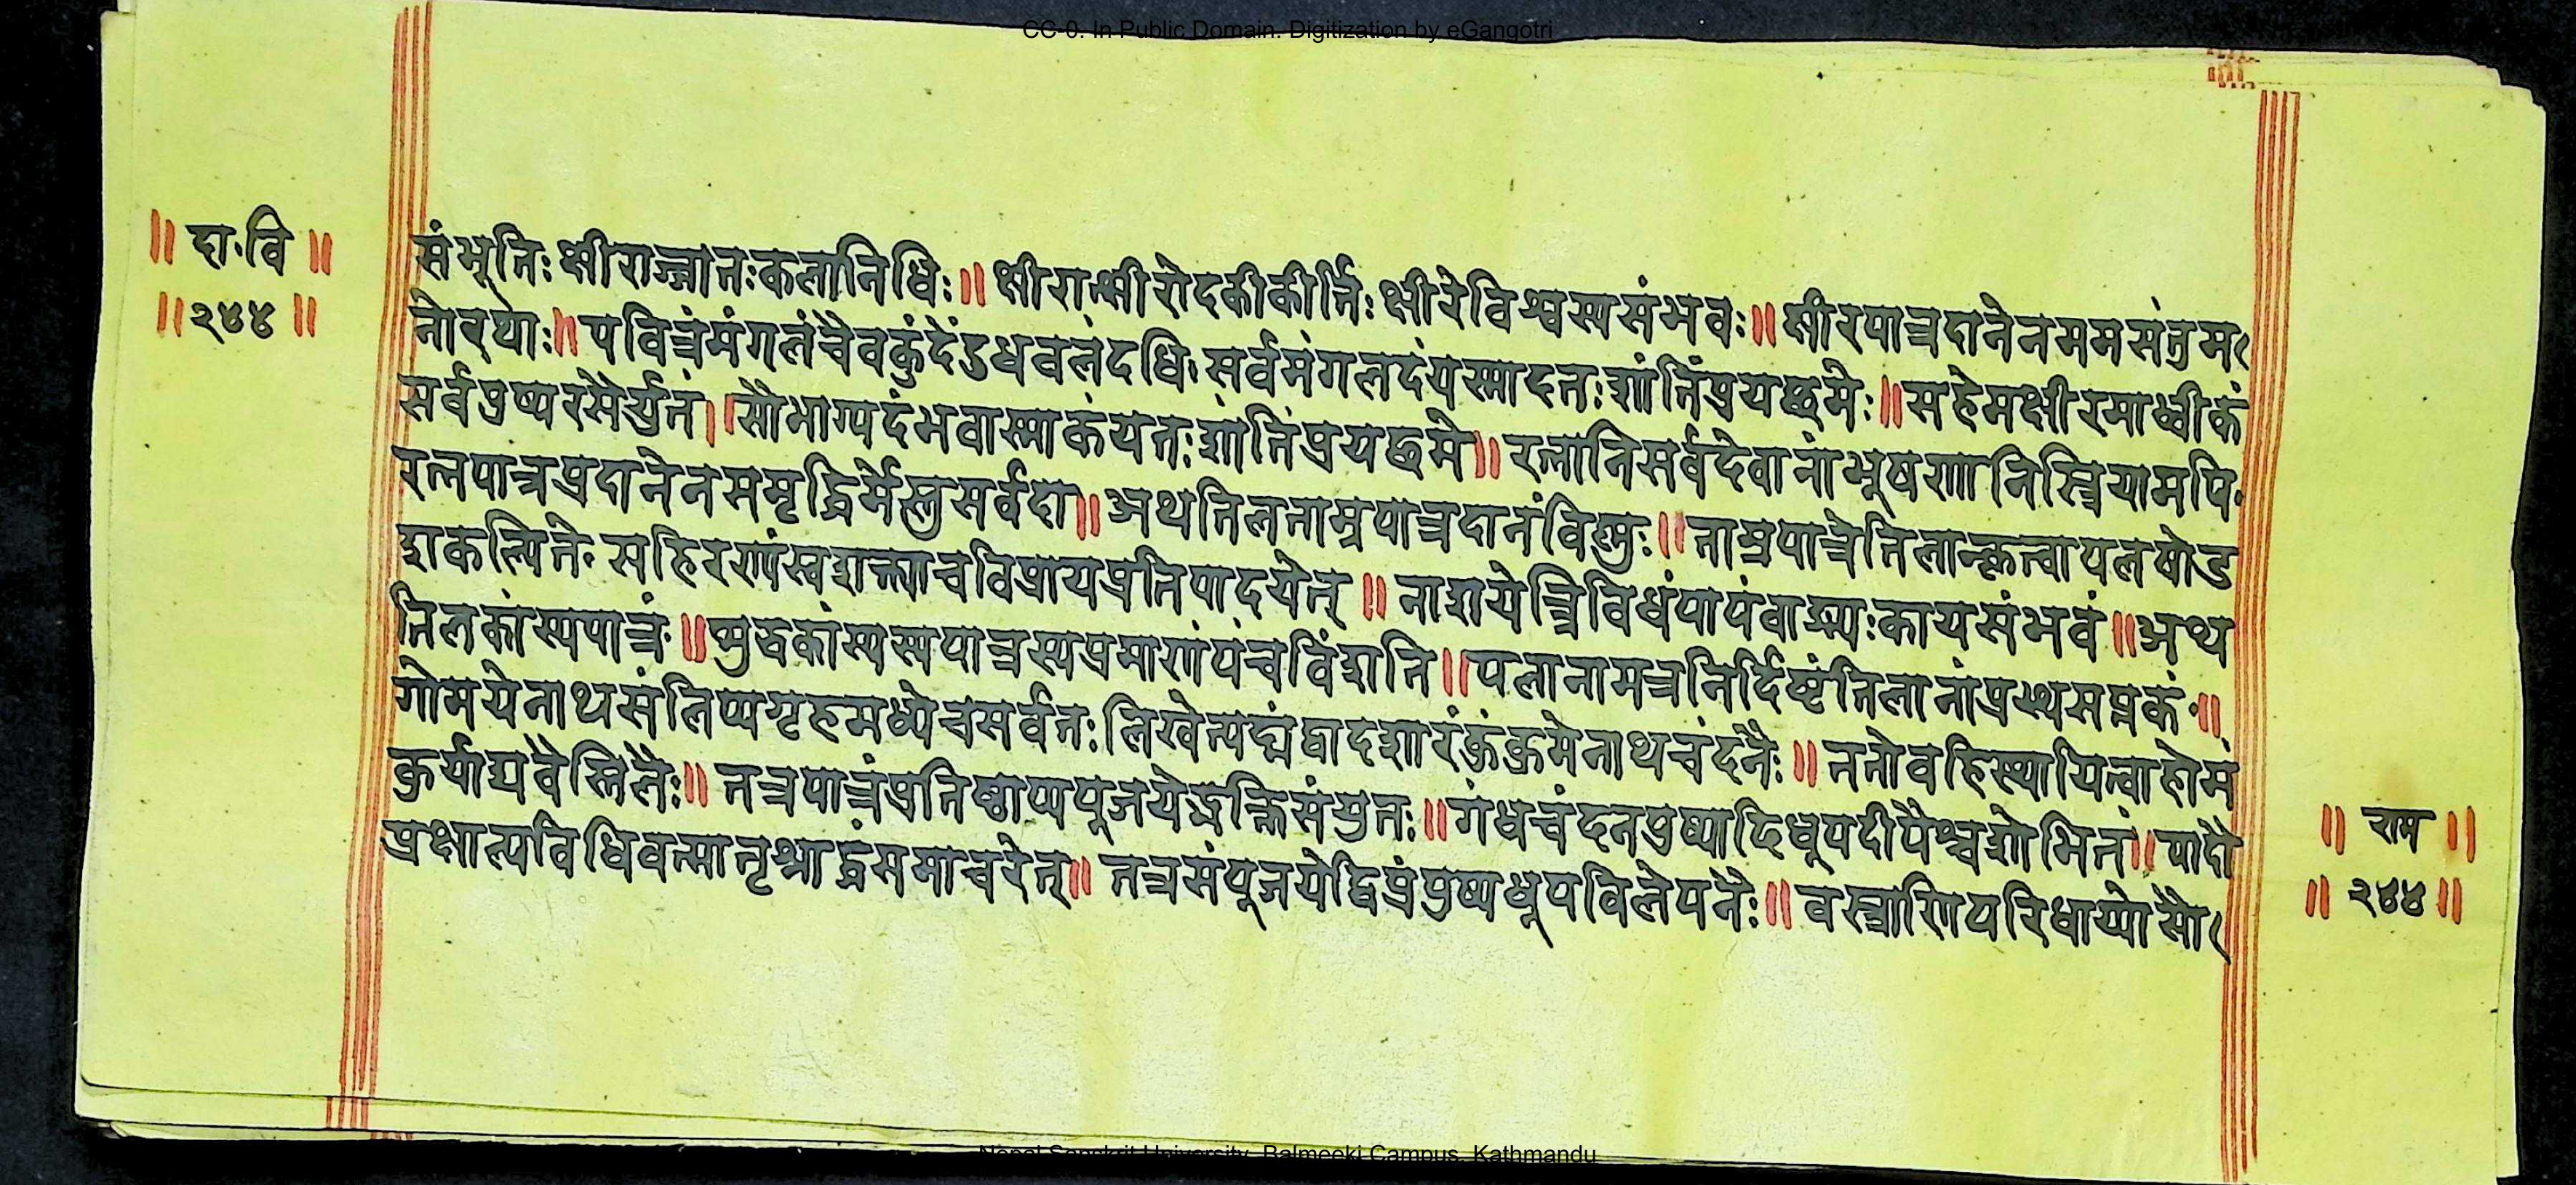 CC-0. In Public Domain. Digitization by eGangotri
॥ दा॰वि ॥
॥ २४४ ॥
संभूतिः क्षीराज्जातःकलानिधिः॥ क्षीरात्क्षीरोदकीकीर्त्तिः क्षीरेविश्वस्यसंभवः॥ क्षीरपात्रदानेनममसंतुम
नोरथाः॥ पवित्रंमंगलंचैवकुंदेंडधवलंदधि। सर्वमंगलदंयस्मादतःशांतिंप्रयछमेः॥सहेमक्षीरमाध्वीकं
सर्वपुष्परसैर्युतं॥सौभाग्यदंभवास्माकंयतःशांतिंप्रयछमे॥ रत्नानिसर्वदेवानांभूषणानिस्त्रियामपि
रत्नपात्रप्रदानेनसमृद्धिर्मेस्तुसर्वदा॥ अथतिलताम्रपात्रदानंविष्णुः॥ताम्रपात्रेतिलान्कृत्वापलषोड
शकल्पिते॰ सहिरण्यंस्वशक्त्याचविप्रायप्रतिपादयेत्॥ नाशयेत्त्रिविधंपापंवाङ्मनःकायसंभवं॥अथ
तिलकांस्यपात्रं॰॥शुद्धकांस्यस्यपात्रस्यप्रमाणंपंचविंशति॥पलानामत्रनिर्दिष्टंतिलानांप्रस्थसप्तकं॥
गोमयेनाथसंलिप्यगृहमध्येचसर्वतः लिखेत्पद्मंद्वादशारंकुंक्रमेनाथचंदनैः॥ ततोवह्निस्थापयित्वाहोमं
कुर्याद्यवैस्तिलैः॥ तत्रपात्रंप्रतिष्ठाप्यपूजयेद्भक्तिसंयुतः॥गंधचंदनपुष्पादिधूपदीपैश्चशोभितं॥पादौ
प्रक्षाल्यविधिवन्मातृश्राद्धंसमाचरेत्॥ तत्रसंपूजयेद्विप्रंपुष्पधूपविलेपनैः॥ वस्त्राणिपरिधाय्यासौ
॥ राम ॥
॥ २४४ ॥
Nepal Sanskrit University, Balmeeki Campus, Kathmandu